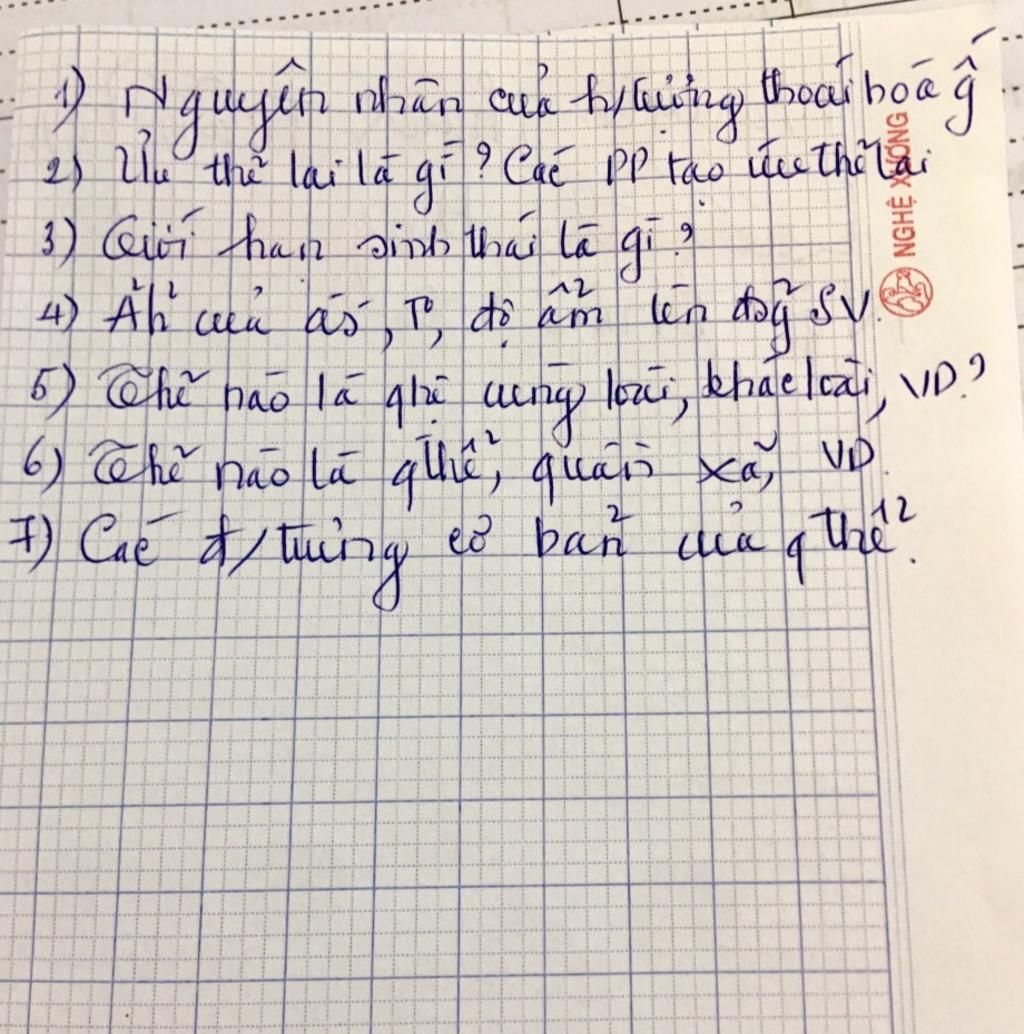 1) Nguyên nhân của h/tưởng thoái hoá gố́
2) Ưu thế lai là gì? Các PP tạo ưu thế lai
3) Giới hạn sinh thái là gì?
4) Ảh' của ás, T°, độ ẩm lên độg SV.
5) Thế nào là qhệ cùng loài, khác loài, VD?
6) Thế nào là qthể, quần xã, VD.
7) Các đ/trưng cơ bản của qthể.
NGHỆ XƯƠNG